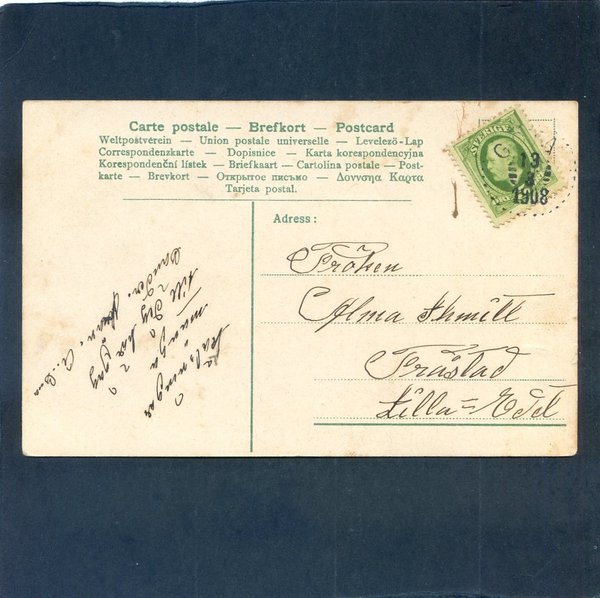 Carte postale — Brefkort — Postcard
Weltpostverein — Union postale universelle — Levelező-Lap
Correspondenzkarte — Dopisnice — Karta korespondencyjna
Korespondenční lístek — Briefkaart — Cartolina postale — Post-
karte — Brevkort — Открытое письмо — Δοννσηα Καρτα
Tarjeta postal.
SVERIGE
13
1908
Adress:
Fröken
Alma Schmitt
Fråstad
Lilla=Edet
många
till Dig